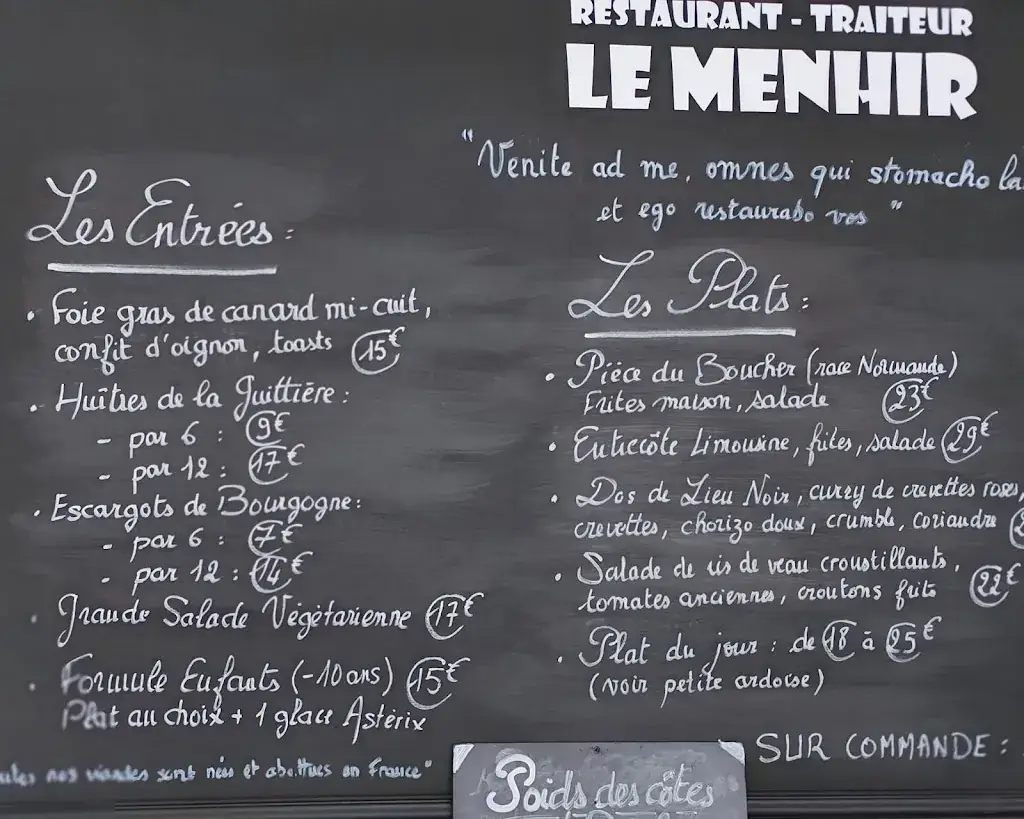 RESTAURANT - TRAITEUR
LE MENHIR
"Venite ad me, omnes qui stomacho la
et ego restaurabo vos"
Les Entrées :
• Foie gras de canard mi-cuit,
confit d'oignon, toasts 15€
• Huîtres de la Guittière :
- par 6 : 9€
- par 12 : 17€
• Escargots de Bourgogne :
- par 6 : 7€
- par 12 : 14€
• Grande Salade Végétarienne 17€
• Formule Enfants (-10 ans) 15€
Plat au choix + 1 glace Astérix
nos viandes sont nées et abattues en France"
Les Plats :
• Pièce du Boucher (race Normande)
Frites maison, salade 23€
• Entrecôte Limousine, frites, salade 29€
• Dos de Lieu Noir, curry de crevettes roses,
crevettes, chorizo doux, crumble, coriandre
• Salade de ris de veau croustillants,
tomates anciennes, croutons frits 22€
• Plat du jour : de 18 à 25€
(voir petite ardoise)
SUR COMMANDE :
Poids des côtes